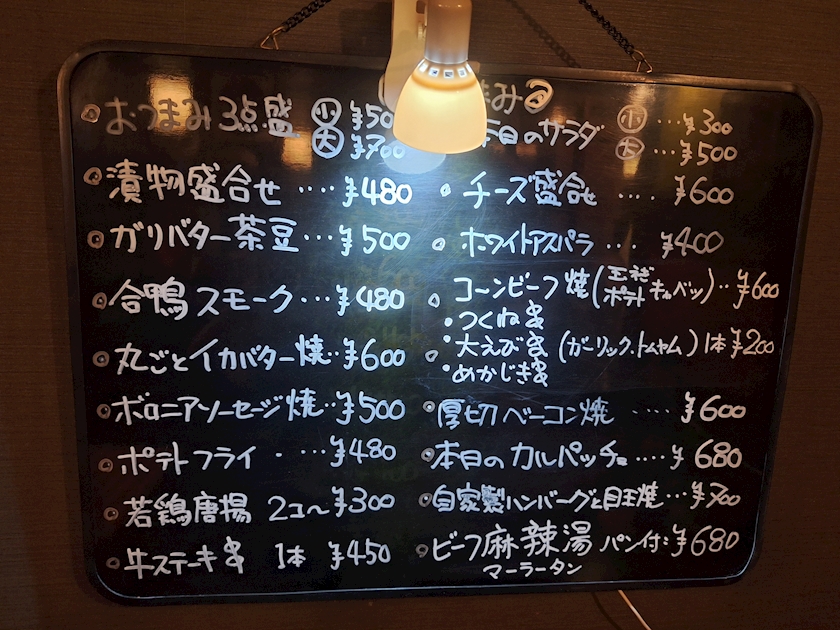 おつまみ3点盛 小 ¥500
大 ¥700
漬物盛合せ ‥‥ ¥480
ガリバター茶豆 … ¥500
合鴨スモーク … ¥480
丸ごとイカバター焼 ‥ ¥600
ボロニアソーセージ焼 ‥ ¥500
ポテトフライ ・‥ ¥480
若鶏唐揚 2コ〜 ¥300
牛ステーキ串 1本 ¥450
まみ
日のサラダ 小 … ¥300
大 … ¥500
チーズ盛合せ ‥‥ ¥600
ホワイトアスパラ … ¥400
コーンビーフ焼(玉ねぎ ポテト キャベツ) ‥ ¥600
・つくね串
・大えび串 (ガーリック、トムヤム) 1本 ¥200
・めかじき串
厚切ベーコン焼 ‥‥ ¥600
本日のカルパッチョ ‥‥ ¥680
自家製ハンバーグと目玉焼 … ¥700
ビーフ麻辣湯 パン付 : ¥680
マーラータン